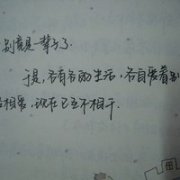 别竟是一辈子了.
于是,各有各的生活,各自爱着别
相爱,现在已互不相干.